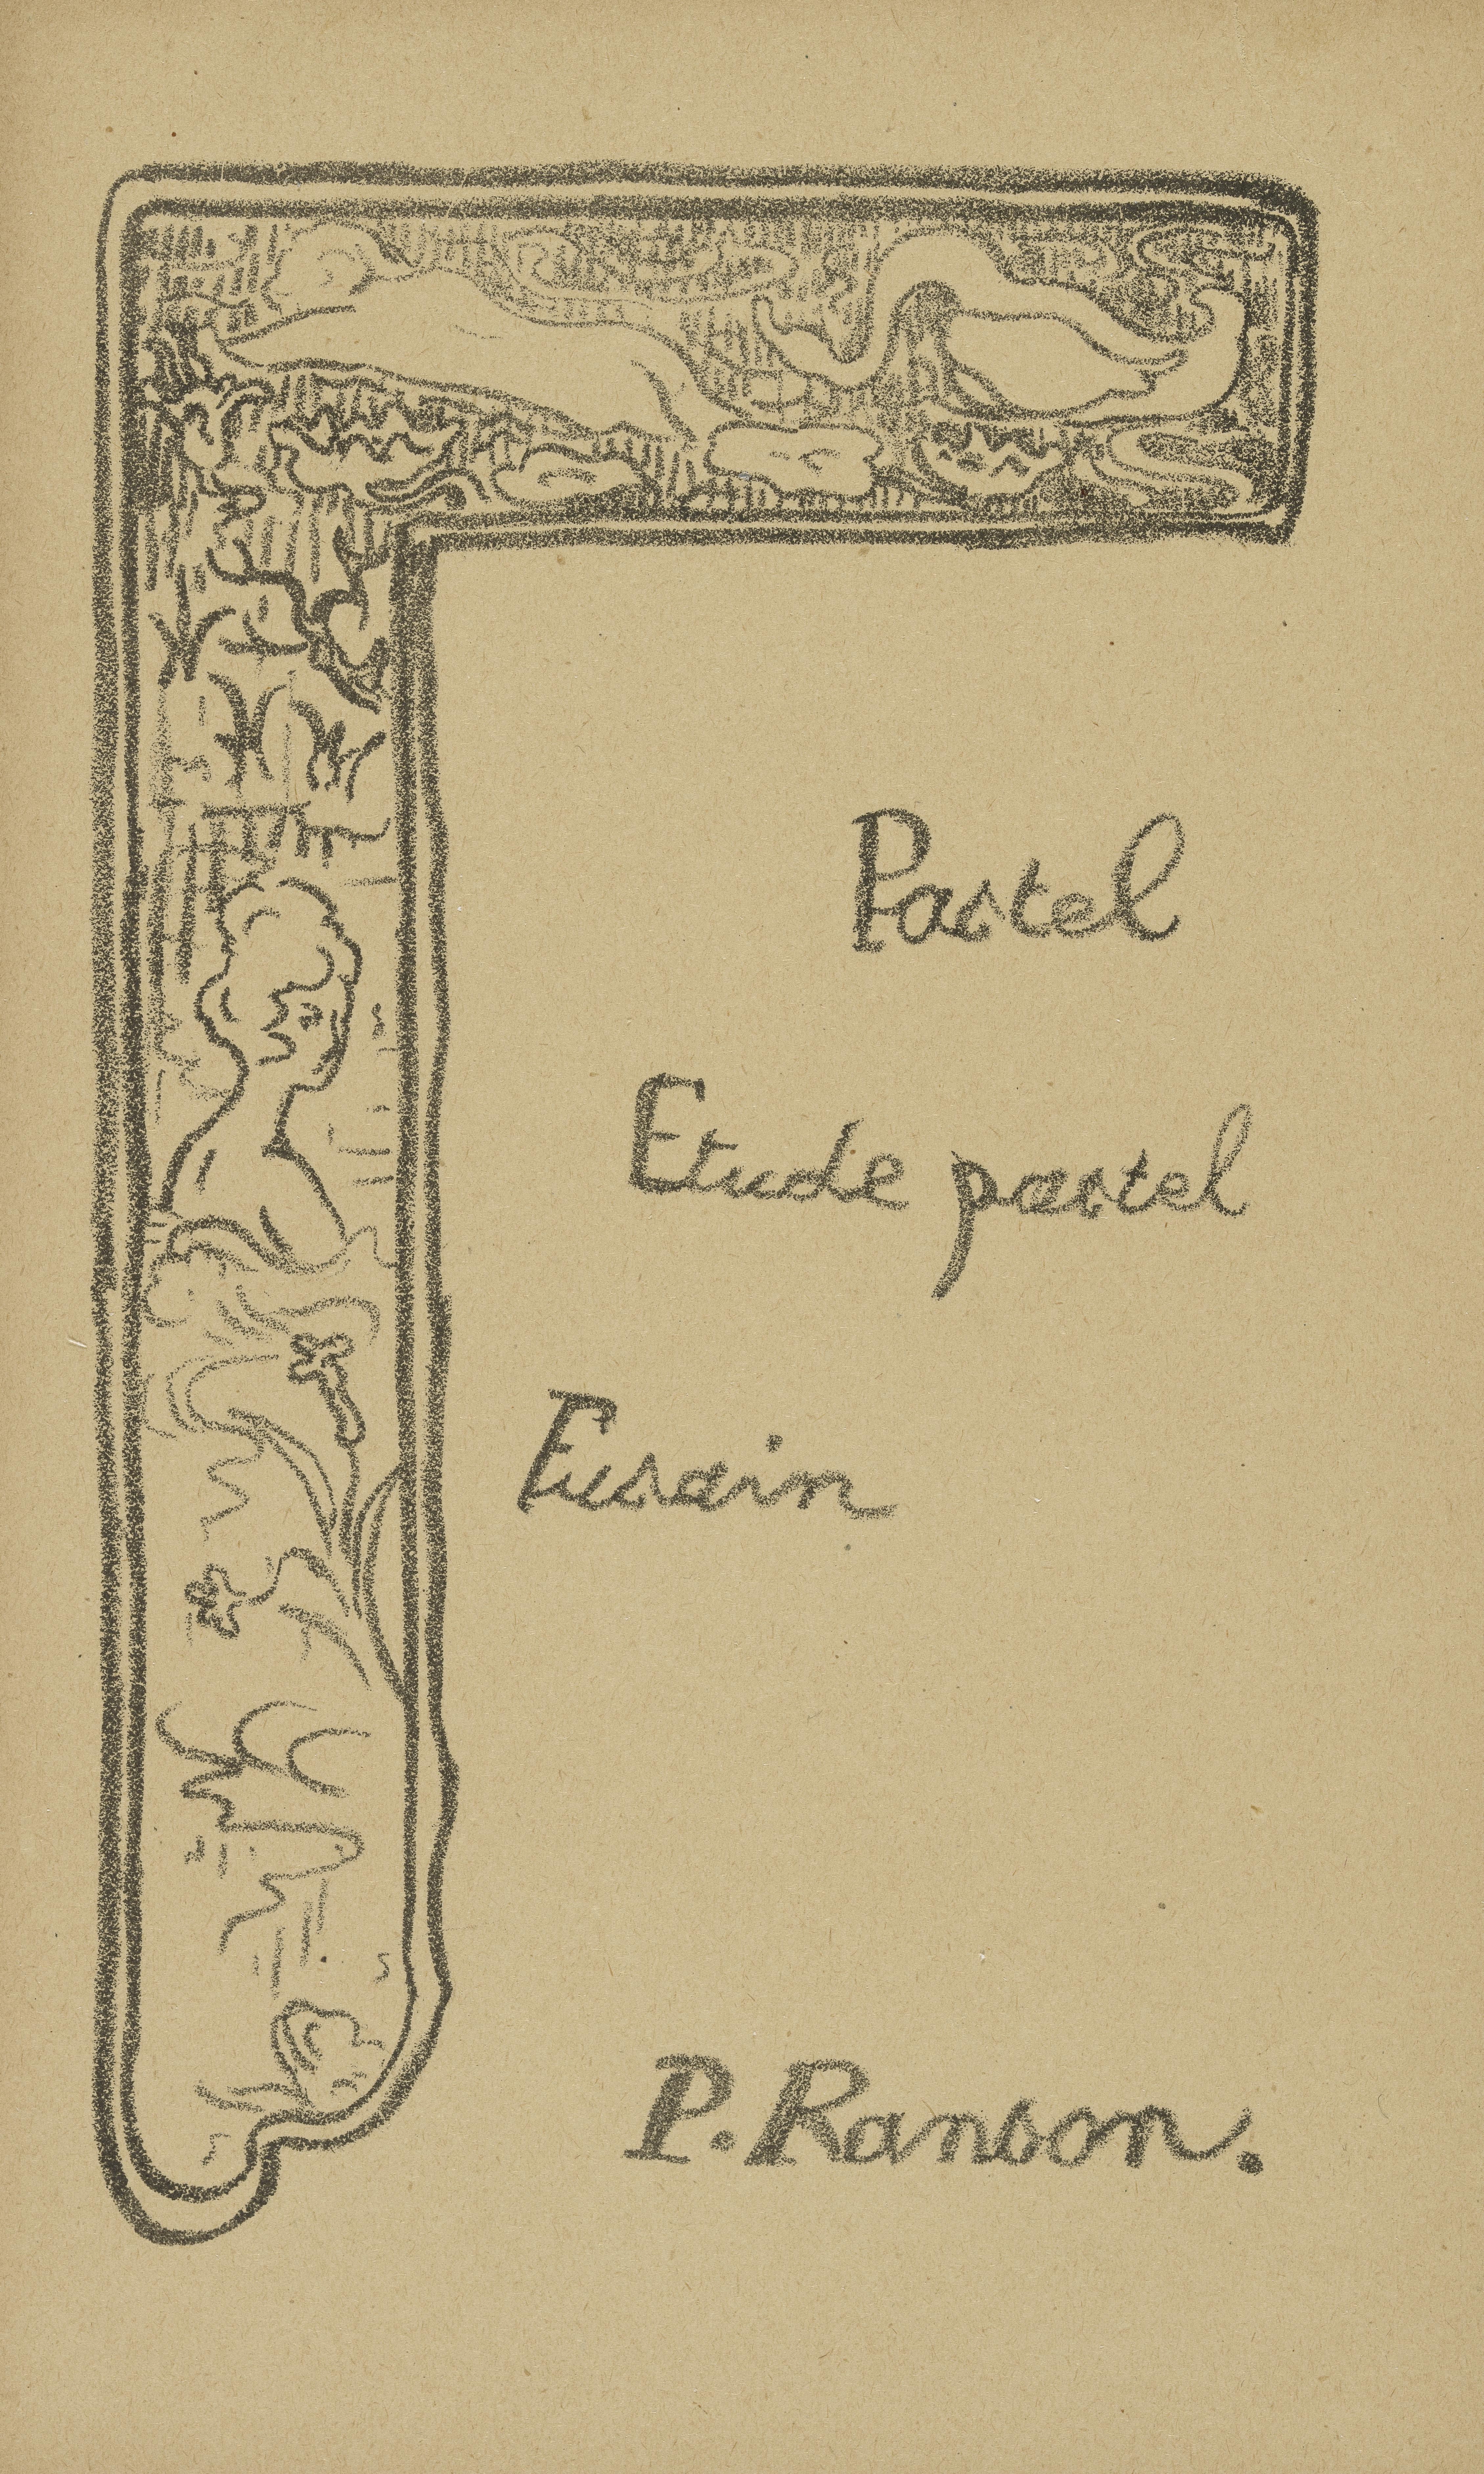 Pastel
Etude pastel
Fusain
P. Ranson.